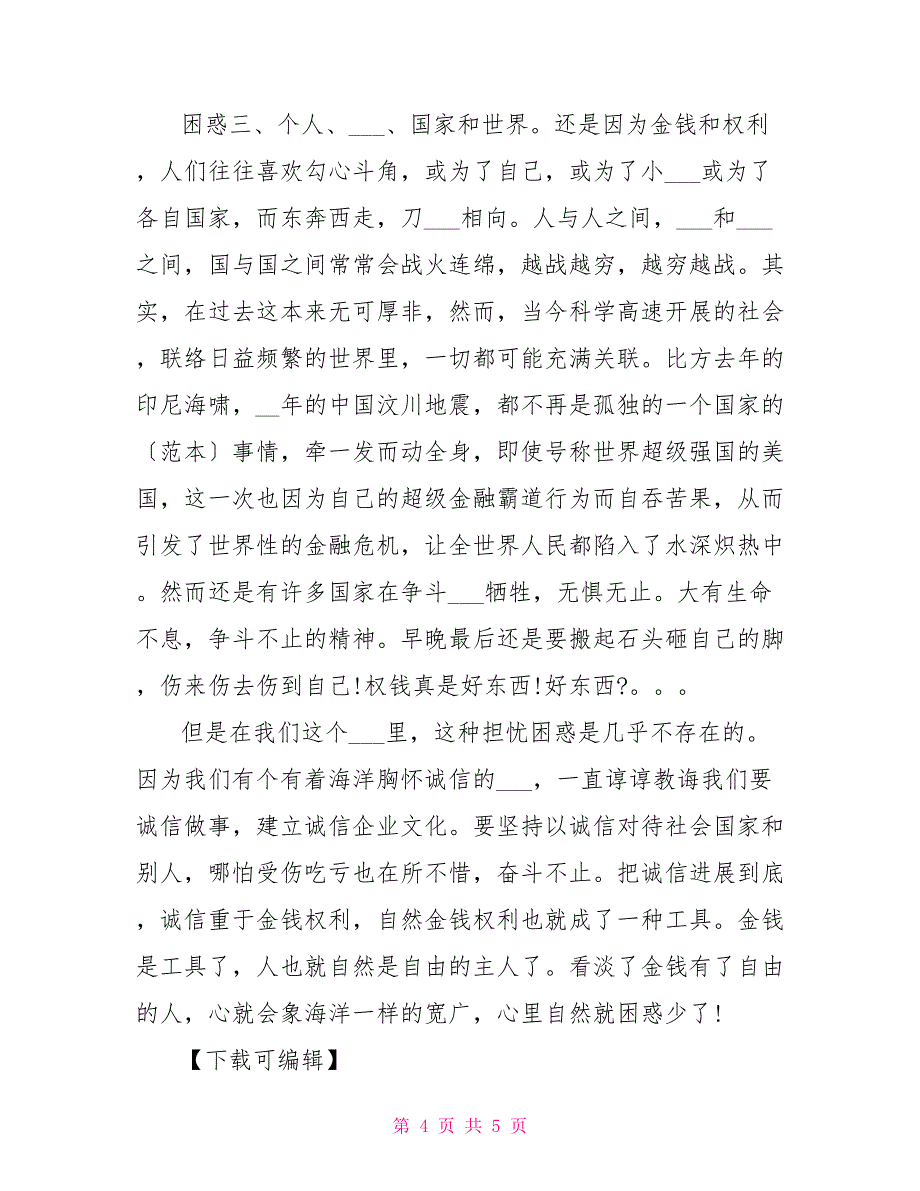 困惑三、个人、___、国家和世界。还是因为金钱和权利
，人们往往喜欢勾心斗角，或为了自己，或为了小___或为了
各自国家，而东奔西走，刀___相向。人与人之间，___和___
之间，国与国之间常常会战火连绵，越战越穷，越穷越战。其
实，在过去这本来无可厚非，然而，当今科学高速开展的社会
，联络日益频繁的世界里，一切都可能充满关联。比方去年的
印尼海啸，__年的中国汶川地震，都不再是孤独的一个国家的
〔范本〕事情，牵一发而动全身，即使号称世界超级强国的美
国，这一次也因为自己的超级金融霸道行为而自吞苦果，从而
引发了世界性的金融危机，让全世界人民都陷入了水深炽热中
。然而还是有许多国家在争斗___牺牲，无惧无止。大有生命
不息，争斗不止的精神。早晚最后还是要搬起石头砸自己的脚
，伤来伤去伤到自己!权钱真是好东西!好东西?。。。
但是在我们这个___里，这种担忧困惑是几乎不存在的。
因为我们有个有着海洋胸怀诚信的___，一直谆谆教诲我们要
诚信做事，建立诚信企业文化。要坚持以诚信对待社会国家和
别人，哪怕受伤吃亏也在所不惜，奋斗不止。把诚信进展到底
，诚信重于金钱权利，自然金钱权利也就成了一种工具。金钱
是工具了，人也就自然是自由的主人了。看淡了金钱有了自由
的人，心就会象海洋一样的宽广，心里自然就困惑少了!
【下载可编辑】
第 4 页 共 5 页